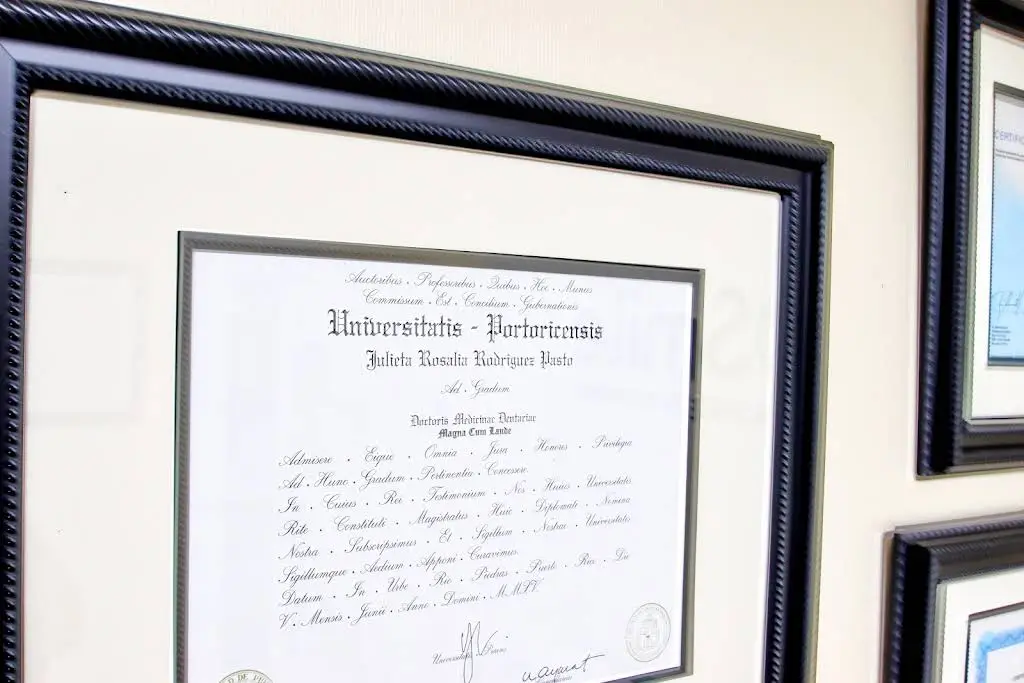 Auctoribus . Professoribus . Quibus . Hoc . Munus
Commissum . Est . Concilium . Gubernationis
Universitatis - Portoricensis
Julieta Rosalia Rodriguez Pasto
Ad . Gradum
Doctoris Medicinae Dentariae
Magna Cum Laude
Admisere . Eique . Omnia . Jura . Honores . Privilegia
Ad . Hunc . Gradum . Pertinentia . Concessere.
In . Cuius . Rei . Testimonium . Nos . Huius . Universitatis
Rite . Constituti . Magistratus . Huic . Diplomati . Nomina
Nostra . Subscripsimus . Et . Sigillum . Nostrae . Universitatis
Sigillumque . Aedium . Apponi . Curavimus.
Datum . In . Urbe . Rio . Piedras . Puerto . Rico . Die
V . Mensis . Junii . Anno . Domini . M.MIV.
Universitatis
CERTIFIC